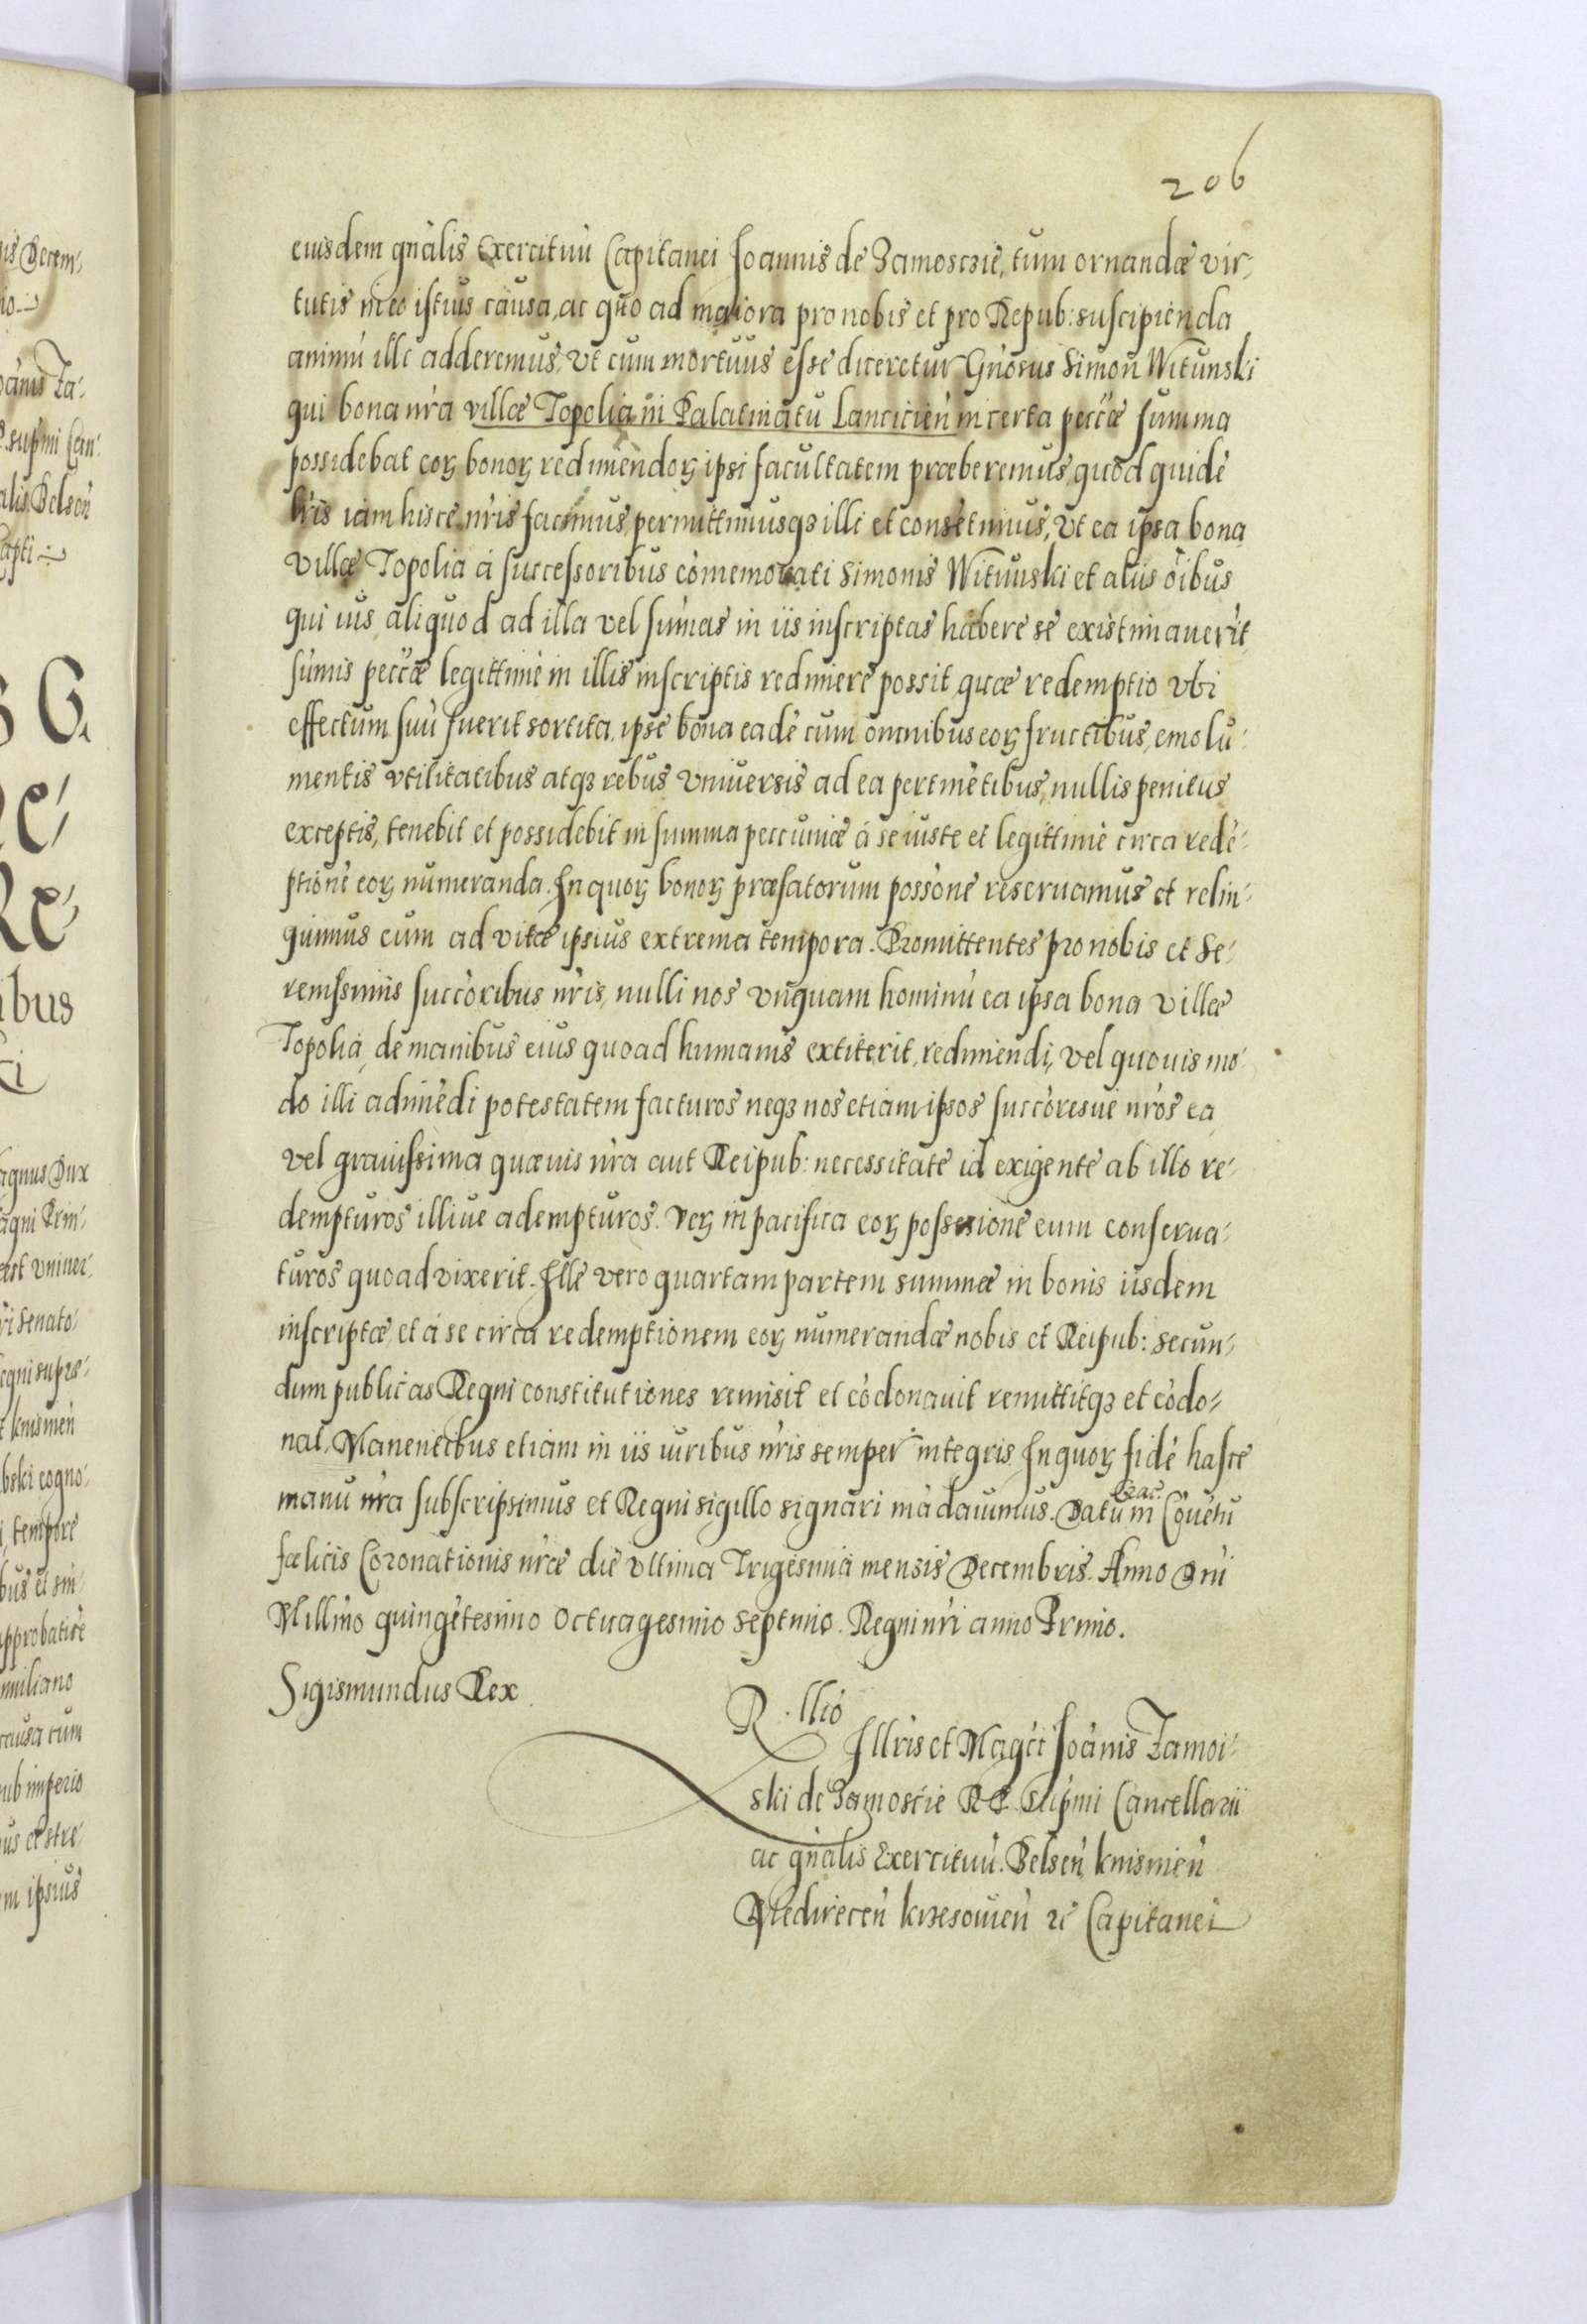 206
eiusdem gnàlis Exercituù Capitanei Joannis de Zamosczie, tum ornandæ vir-
tutis in eo istius causa, ac quo ad maiora pro nobis et pro Repub: suscipienda
animù illi adderemus, vt cum mortuus esse diceretur Gnosus Simon Witunski
qui bona nra villæ Topolia in Palatinatu Lanciciens in certa pecc̃æ summa
possidebat eoꝝ bonoꝝ redimendoꝝ ipsi facultatem præberemus, quod quidè
lr̃is iam hisce nr̃is facimus, permittimusqꝫ illi et consẽtimus, vt ea ipsa bona
villæ Topolia à successoribus còmemorati Simonis Witunski et aliis õibus
qui ius aliquod ad illa vel sùmas in iis inscriptas habere se existimauerìt
sùmis pecc̃æ legittimè in illis inscriptis redimere possit, quæ redemptio vbi
effectum suù fuerit sortita, ipse bona eadè cum omnibus eoꝝ fructibus, emolu-
mentis vtilitatibus atqꝫ rebus vniuersis ad ea pertinètibus, nullis penitus
exceptis, tenebit et possidebit in summa pecuniæ à se iuste et legittimè circa redè-
ptionè eoꝝ numeranda. In quoꝝ bonoꝝ præfatorum possònè reseruamus et relin-
quimus eum ad vitæ ipsius extrema tempora. Promittentes pro nobis et Se-
renissimis succòribus nr̃is, nulli nos vnquam hominù ea ipsa bona villæ
Topolia, de manibus eius quoad humanis extiterit, redimendi, vel quouis mo-
do illi adimèdi potestatem facturos neqꝫ nos etiam ipsos succòresuè nr̃os ea
vel grauissima quæuis nr̃a aut Reipub: necessitate id exigente ab illo re-
dempturos illiue adempturos. Veꝝ in pacifica eoꝝ possessionè eum conserua-
turos quoad vixerit. Ille vero quartam partem summæ in bonis iisdem
inscriptæ, et à se circa redemptionem eoꝝ numerandæ nobis et Reipub: secun-
dum publicas Regni constitutiones remisit et còdonauit remittitqꝫ et còdo-
nat. Manentibus etiam in iis iuribus nr̃is semper integris. In quoꝝ fidè hasce
manu nr̃a subscripsimus et Regni sigillo signari màdauimus. Datù in Còuètu
Crac.
fælicis Coronationis nr̃æ die vltima Trigesima mensis Decembris. Anno Dni
Millmo quingètesimo Octuagesimo Septimo. Regni nr̃i anno Primo.
Sigismundus Rex.
R. llió
Illris et Magcì Joànis Zamoi-
ski de Zamoscie RP. Supmi Cancellarii
ac gnàlis Exercituù. Belsen, knisinen
Miedirecen krzesouien zc Capitanei